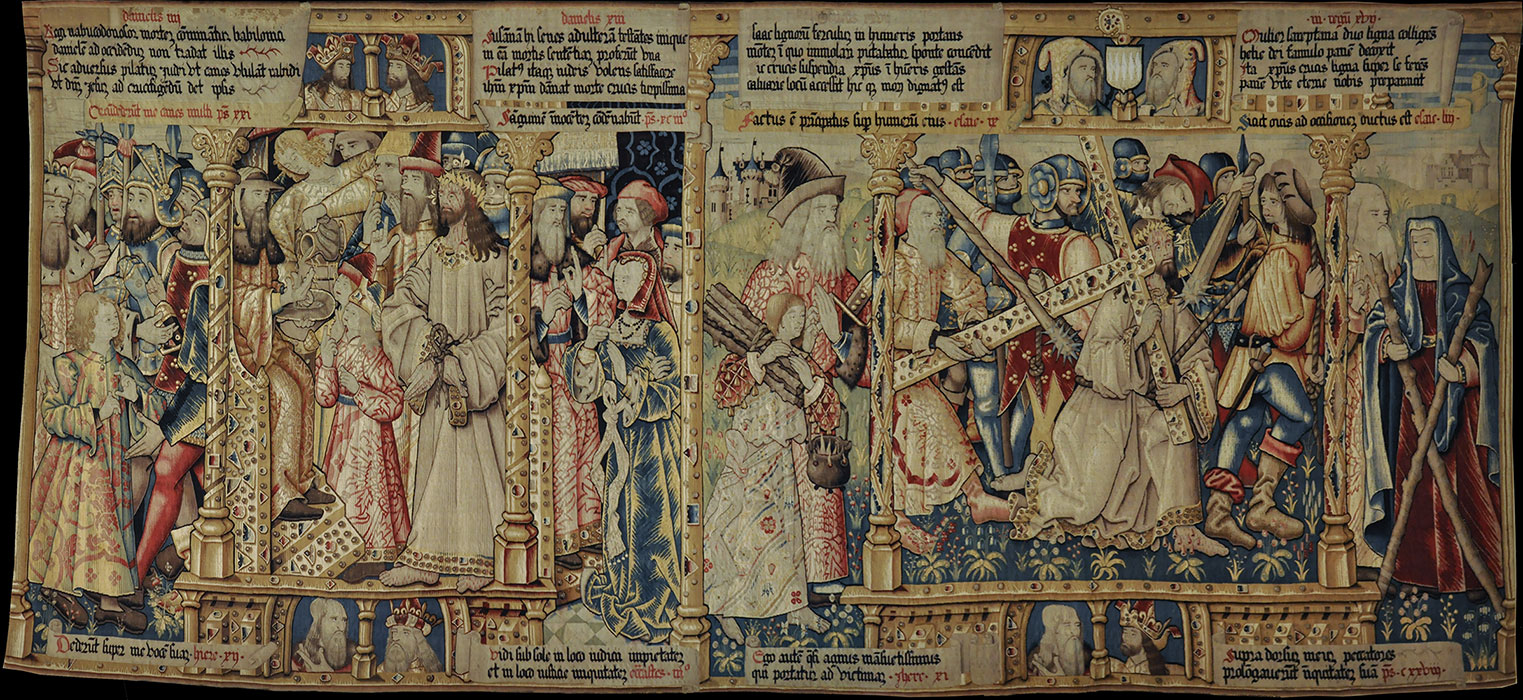 danielis iiij
Regi nabucodonosor mortem cominantur babilonia
danielem ad occidendum non tradat illis
Sic adversus pilatum iudei ut canes ululant rabidi
Ut dum Jesum ad crucifigendum det ipsis
Circumdederunt me canes multi ps xxi
danielis xiii
Susannam hi senes adulteram testantes inique
in eam mortis sententiam proferunt una
Pilatus itaque iudeis volens satisfacere
ihm xpm damnat morte crucis turpissima
Sanguinem inocetem codenabunt ps xciiio
Isaac lignorum fasciculum in humeris portans
montem in quo immolari putabatur sponte concendit
ic crucis suspendia xpus in humeris gestans
calvarie locum accessit hic quem mori dignatus est
Factus e principatus super humerum eius esaie ix
iii regum xvii
Mulier sareptana duo ligna colligens
helie dei famulo panem decoxit
Ita xpus crucis ligna super se ferens
panem vite eterne nobis preparavit
Sicut ovis ad occisionem ductus est esaie liii
Dederunt super me vocem suam hiere xii
Vidi sub sole in loco iudicii impietatem
et in loco iusticie iniquitatem ecclastes iiio
Ego autem qsi agnus mansuetissimus
qui portatur ad victimam Jhere xi
Supra dorsum meum peccatores
prolongaverunt iniquitatem suam ps cxxviii